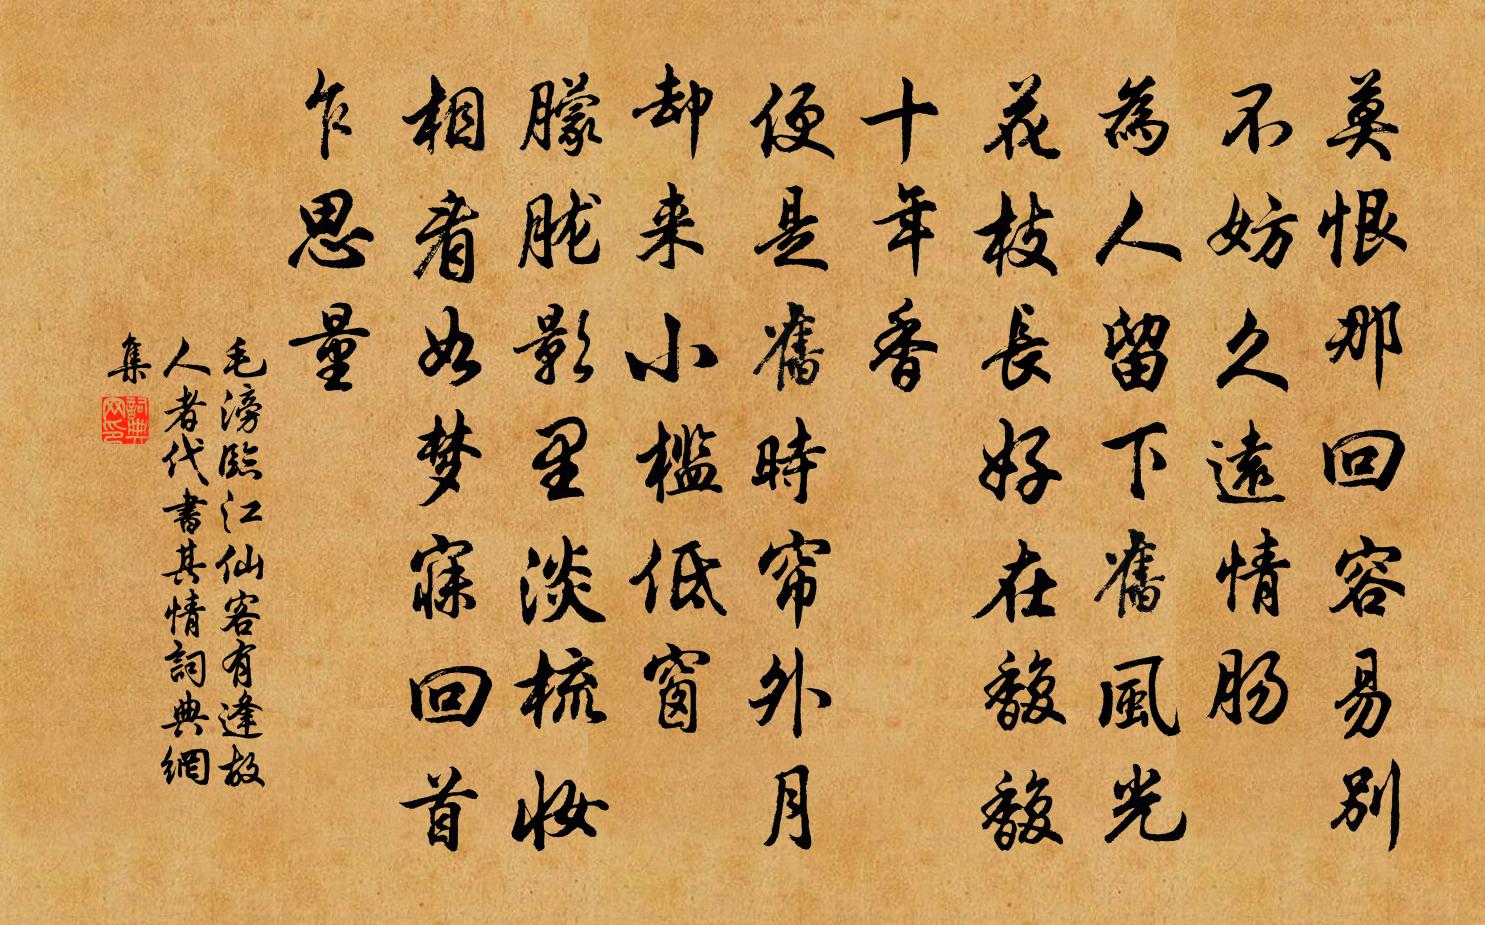 莫恨那回容易别
不妨久遠情肠
為人留下舊風光
花枝長好在馥馥
十年香
便是舊時帘外月
却来小槛低窗
朦胧影里淡梳妆
相看如梦寐回首
乍思量
毛滂臨江仙客有逢故
人者代書其情詞典網
集
詞典
网印